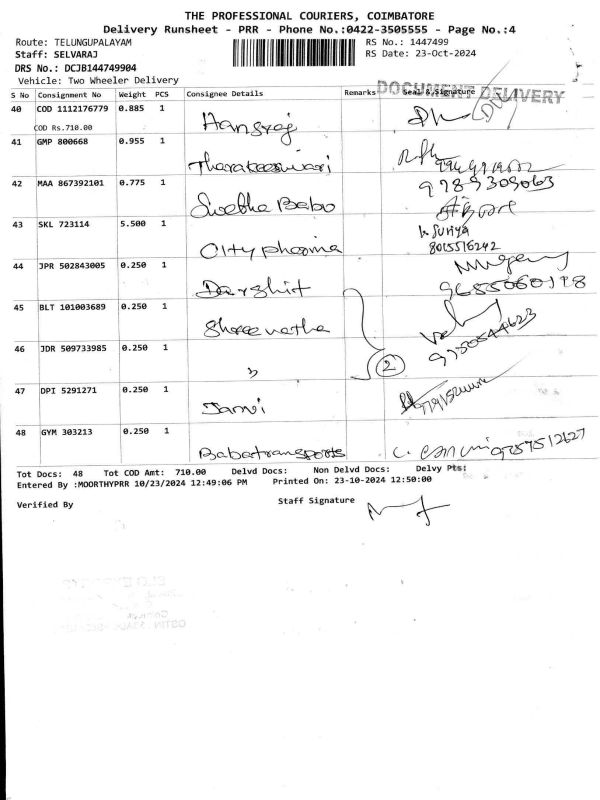 THE PROFESSIONAL COURIERS, COIMBATORE
Delivery Runsheet - PRR - Phone No.:0422-3505555 - Page No.:4
Route: TELUNGUPALAYAM RS No.: 1447499
Staff: SELVARAJ RS Date: 23-Oct-2024
DRS No.: DCJB144749904
Vehicle: Two Wheeler Delivery
DOCUMENT DELIVERY
S No Consignment No Weight PCS Consignee Details Remarks Seal & Signature
40 COD 1112176779 0.885 1 Hansraj
COD Rs.710.00
41 GMP 800668 0.955 1 Tharakeeswari
42 MAA 867392101 0.775 1 Swetha Babu 9789309063
43 SKL 723114 5.500 1 City pharma
Suriya
8015516242
44 JPR 502843005 0.250 1 Darshit 9655060198
45 BLT 101003689 0.250 1 Shreenatha
46 JDR 509733985 0.250 1 " 2 9750544623
47 DPI 5291271 0.250 1 Janvi
48 GYM 303213 0.250 1 Babatransports 9857512627
Tot Docs: 48 Tot COD Amt: 710.00 Delvd Docs: Non Delvd Docs: Delvy Pts:
Entered By :MOORTHYPRR 10/23/2024 12:49:06 PM Printed On: 23-10-2024 12:50:00
Verified By Staff Signature